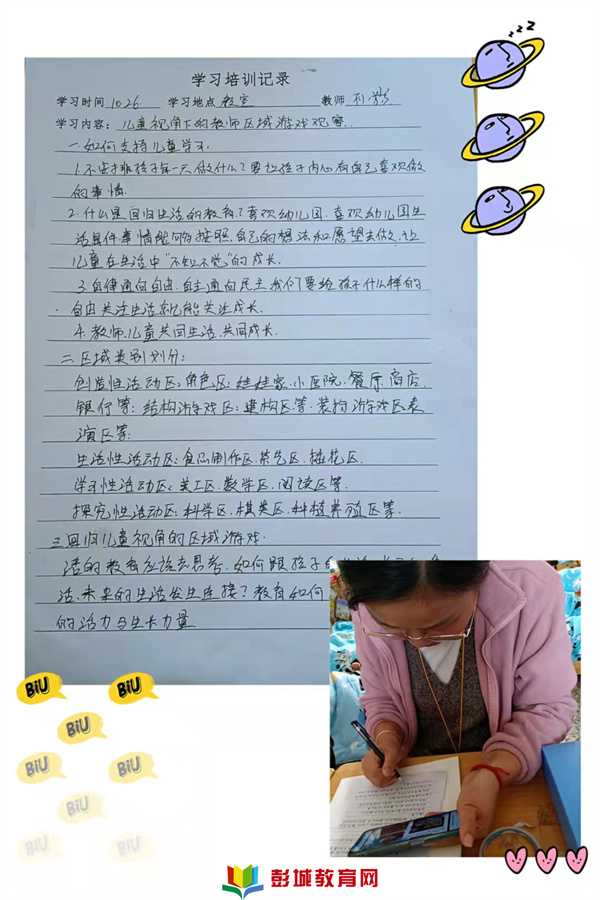 zzz
学习培训记录
学习时间 10.26 学习地点 教室 教师
学习内容：儿童视角下的教师区域游戏观察.
一.如何支持儿童学习.
1.不安排孩子每一天做什么？要让孩子内心有自己喜欢做
的事情.
2.什么是回归生活的教育？喜欢幼儿园.喜欢幼儿园生
活具体事情能够按照.自己的想法和愿望去做.让
儿童在生活中"不知不觉"的成长.
3.自律通向自由.自主通向民主.我们要给孩子什么样的
自由关注生活就能关注成长.
4.教师.儿童共同生活.共同成长.
二.区域类别划分：
创造性活动区：角色区：娃娃家.小医院.餐厅.商店.
银行等：结构游戏区：建构区等.装扮游戏区：表
演区等.
生活性活动区：食品制作区.茶艺区.插花区.
学习性活动区：美工区.数学区.阅读区等.
探究性活动区：科学区.棋类区.种植养殖区等.
三.回归儿童视角的区域游戏.
活的教育应该去思考.如何跟孩子的
活.未来的生活发生连接？教育如何
的活力与生长力量
BiU BiU
BiU
BiU BiU
BiU
BiU BiU
彭城教育网